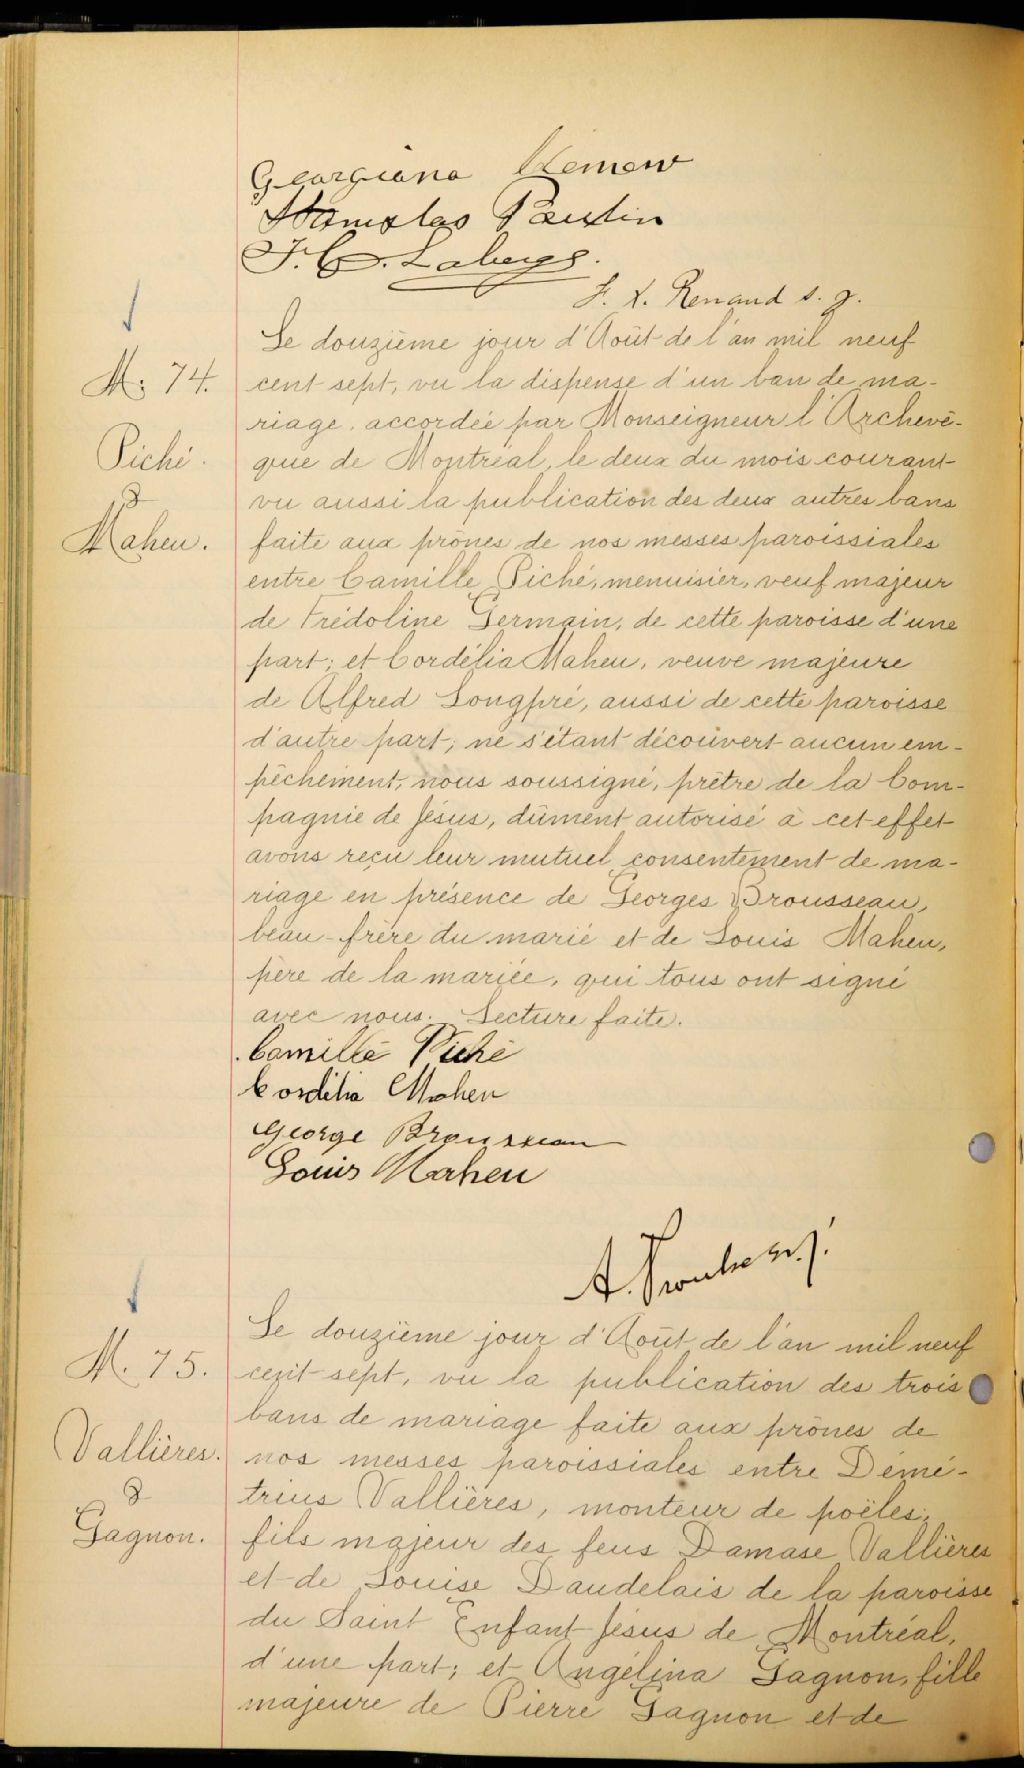 Georgiana
Stanislas Paulin
F. C. Laberge.
F. X. Renaud s. j.
Le douzième jour d'Août de l'an mil neuf
M. 74.
cent sept, vu la dispense d'un ban de ma-
riage accordée par Monseigneur l'Archevê-
Piché.
que de Montréal, le deux du mois courant
&
vu aussi la publication des deux autres bans
Maheu.
faite aux prônes de nos messes paroissiales
entre Camille Piché, menuisier, veuf majeur
de Frédoline Germain, de cette paroisse d'une
part; et Cordélia Maheu, veuve majeure
de Alfred Longpré, aussi de cette paroisse
d'autre part; ne s'étant découvert aucun em-
pêchement, nous soussigné, prêtre de la Com-
pagnie de Jésus, dûment autorisé à cet effet
avons reçu leur mutuel consentement de ma-
riage en présence de Georges Brousseau,
beau-frère du marié et de Louis Maheu,
père de la mariée, qui tous ont signé
avec nous. Lecture faite.
Camille Piché
Cordelia Maheu
George Brousseau
Louis Maheu
A. s.j.
Le douzième jour d'Août de l'an mil neuf
M. 75.
cent sept, vu la publication des trois
bans de mariage faite aux prônes de
Vallières.
nos messes paroissiales entre Démé-
&
trius Vallières, monteur de poëles,
Gagnon.
fils majeur des feus Damase Vallières
et de Louise Daudelais de la paroisse
du Saint Enfant Jésus de Montréal,
d'une part; et Angélina Gagnon, fille
majeure de Pierre Gagnon et de